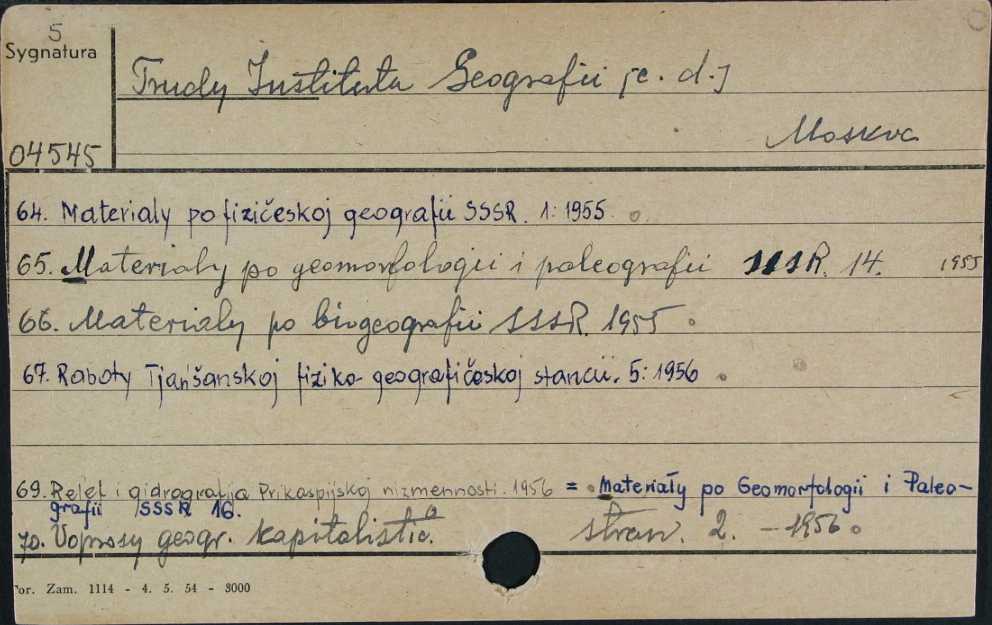 5
Sygnatura
Trudy Instituta Geografii [c. d.]
Moskva
04545
64. Materialy po fizičeskoj geografii SSSR. 1: 1955.
65. Materialy po geomorfologii i paleografii SSSR. 14. 1955
66. Materialy po biogeografii SSSR. 1955.
67. Raboty Tjań'šanskoj fiziko-geografičeskoj stancii. 5: 1956.
69. Relef i gidrografija Prikaspijskoj nizmennosti. 1956 = Materiały po Geomorfologii i Paleo-
grafii SSSR 16.
70. Voprosy geogr. kapitalistič. stran. 2. - 1956.
Tor. Zam. 1114 - 4. 5. 54 - 3000